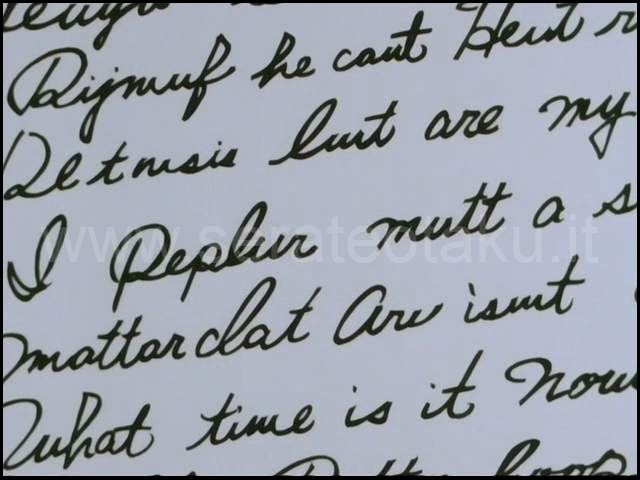 Rijmuf he cant Heut
Retnsis lust are my
I Peplur mutt a s
mattar clat Are isunt
What time is it Now
www.serateotaku.it